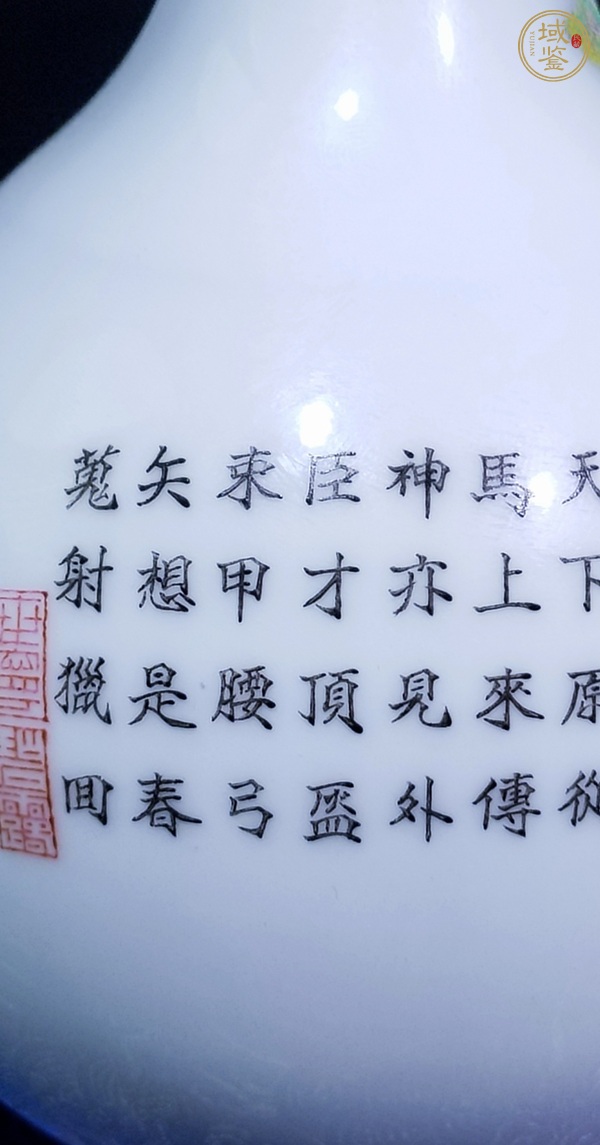 天下原從
馬上來傳
神亦見外
臣才頂盔
束甲腰弓
矢想是春
蒐射獵回
域鑒
YUJIAN